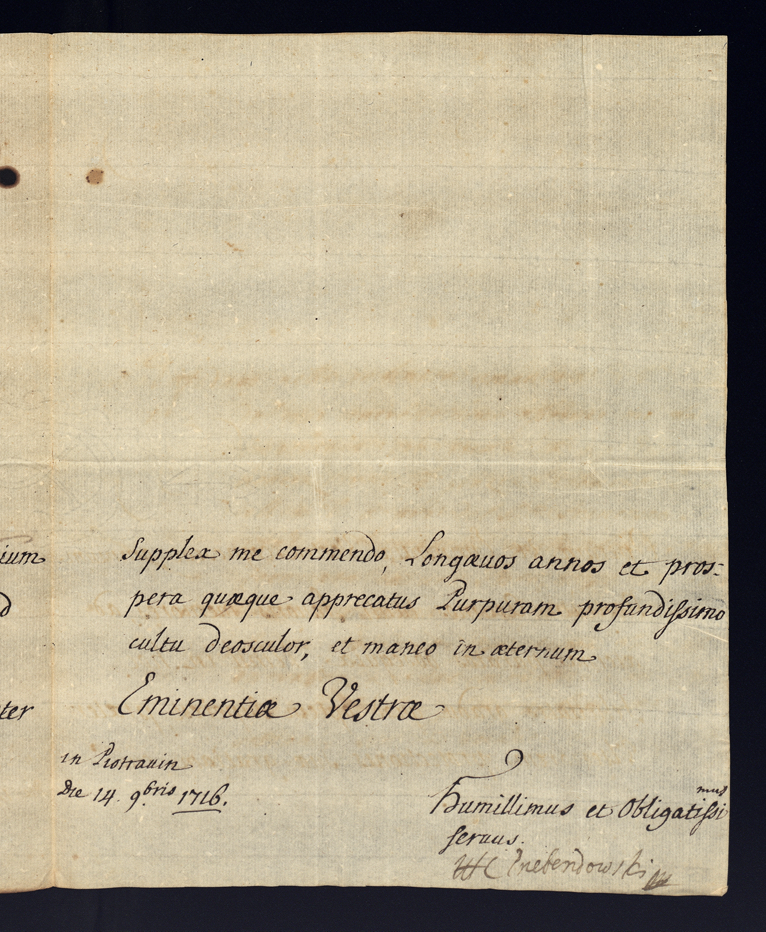 ium
Supplex me commendo, Longævos annos et pros-
pera quæque apprecatus Purpuram profundissimo
cultu deosculor, et maneo in æternum
ter
Eminentiæ Vestræ
in Piotravin
Die 14. 9bris 1716.
Humillimus et Obligatissimus
servus.
Przebendowski